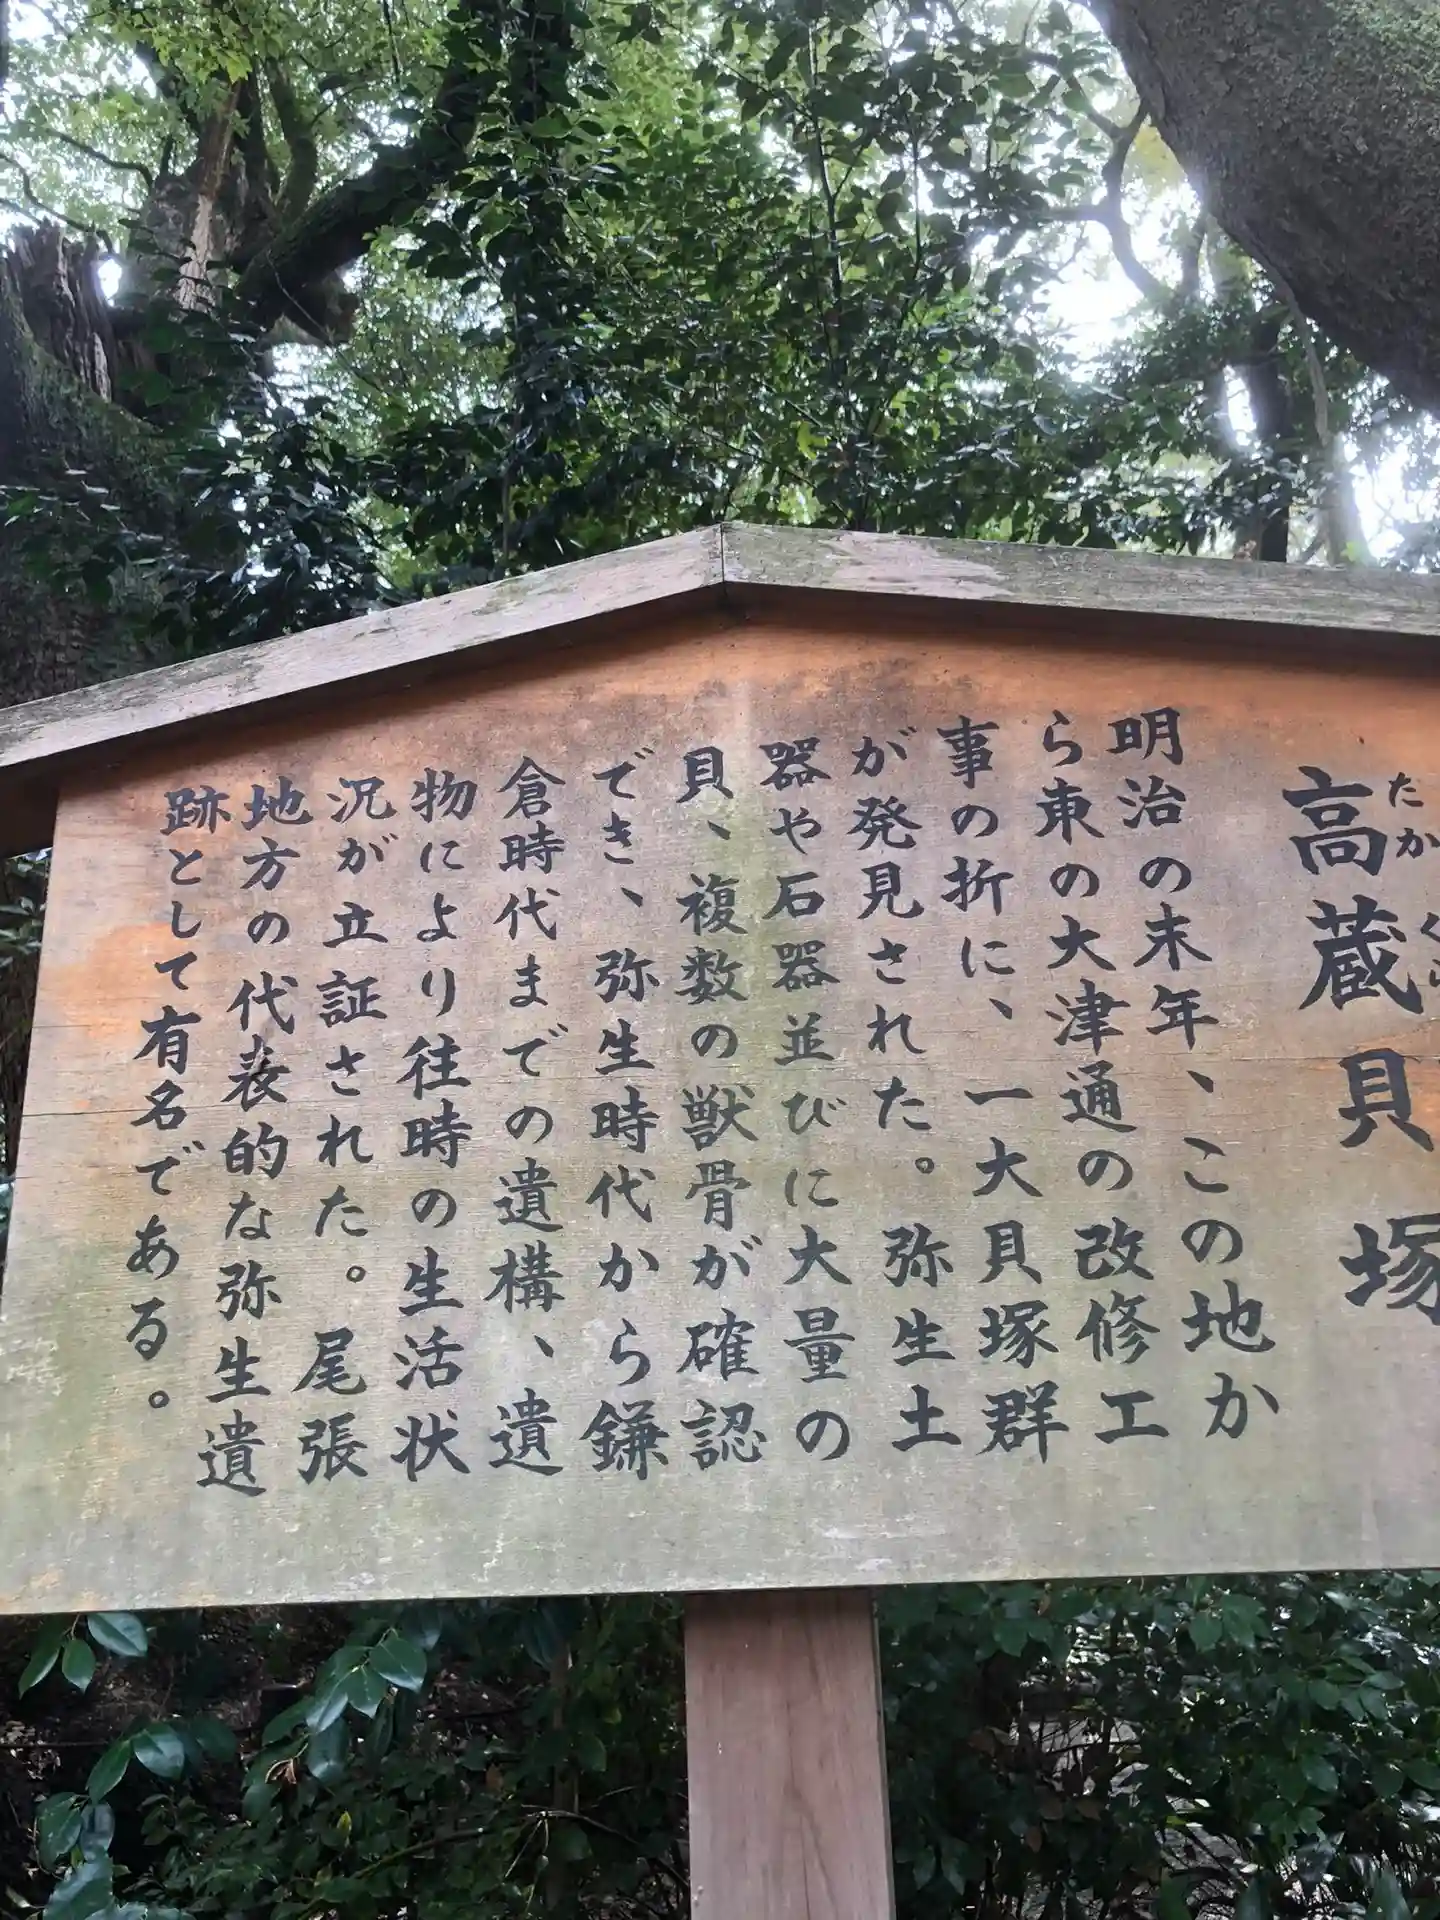 高蔵貝塚
たかくら
明治の末年、この地か
ら東の大津通の改修工
事の折に、一大貝塚群
が発見された。弥生土
器や石器並びに大量の
貝、複数の獣骨が確認
でき、弥生時代から鎌
倉時代までの遺構、遺
物により往時の生活状
況が立証された。尾張
地方の代表的な弥生遺
跡として有名である。